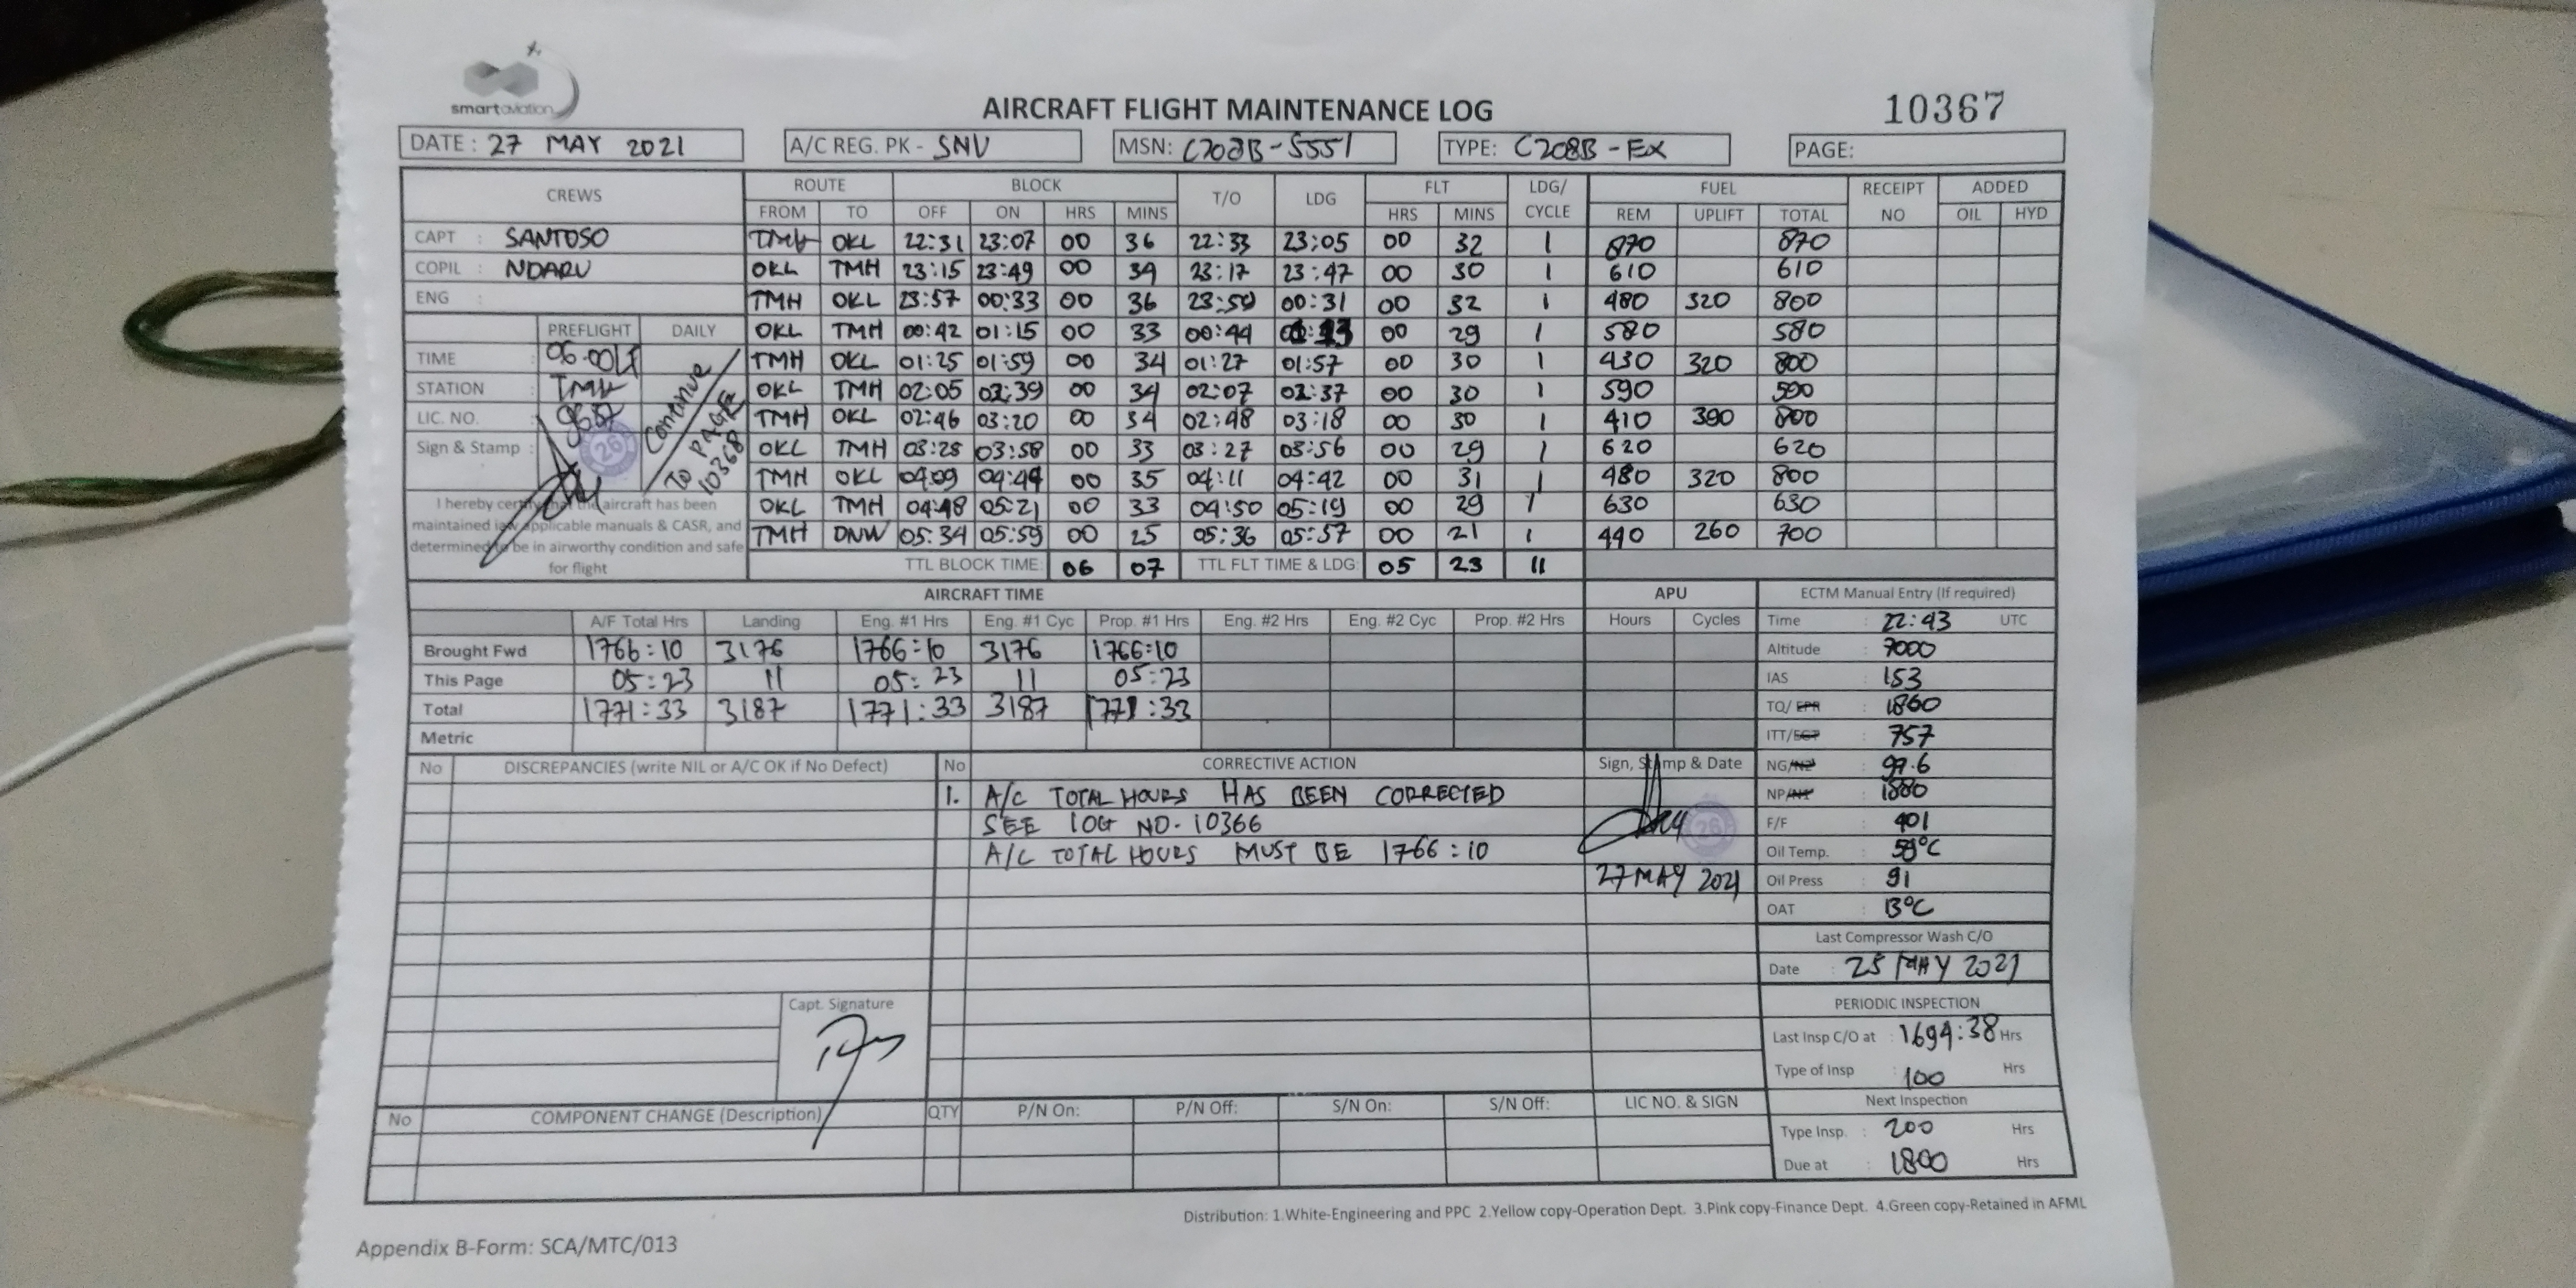 smartaviation
AIRCRAFT FLIGHT MAINTENANCE LOG
10367
DATE : 27 MAY 2021 A/C REG. PK - SNV MSN: C208B-5551 TYPE: C208B-EX PAGE:
CREWS ROUTE BLOCK T/O LDG FLT LDG/ CYCLE FUEL RECEIPT NO ADDED
FROM TO OFF ON HRS MINS HRS MINS REM UPLIFT TOTAL OIL HYD
CAPT : SANTOSO TMH OKL 22:31 23:07 00 36 22:33 23:05 00 32 1 870 870
COPIL : NDARU OKL TMH 23:15 23:49 00 34 23:17 23:47 00 30 1 610 610
ENG : TMH OKL 23:57 00:33 00 36 23:59 00:31 00 32 1 480 320 800
PREFLIGHT DAILY OKL TMH 00:42 01:15 00 33 00:44 01:13 00 29 1 580 580
TIME : 06.00 TMH OKL 01:25 01:59 00 34 01:27 01:57 00 30 1 430 320 800
STATION : TMH OKL TMH 02:05 02:39 00 34 02:07 02:37 00 30 1 590 590
LIC. NO. : TMH OKL 02:46 03:20 00 34 02:48 03:18 00 30 1 410 390 800
Sign & Stamp : 26 OKL TMH 03:25 03:58 00 33 03:27 03:56 00 29 1 620 620
TMH OKL 04:09 04:44 00 35 04:11 04:42 00 31 1 480 320 800
OKL TMH 04:48 05:21 00 33 04:50 05:19 00 29 1 630 630
TMH DNW 05:34 05:59 00 25 05:36 05:57 00 21 1 440 260 700
Continue
TO PAGE
10368
I hereby certify that the aircraft has been
maintained iaw applicable manuals & CASR, and
determined to be in airworthy condition and safe
for flight
TTL BLOCK TIME: 06 07 TTL FLT TIME & LDG: 05 23 11
AIRCRAFT TIME APU ECTM Manual Entry (If required)
A/F Total Hrs Landing Eng. #1 Hrs Eng. #1 Cyc Prop. #1 Hrs Eng. #2 Hrs Eng. #2 Cyc Prop. #2 Hrs Hours Cycles
Brought Fwd 1766:10 3176 1766:10 3176 1766:10
This Page 05:23 11 05:23 11 05:23
Total 1771:33 3187 1771:33 3187 1771:33
Metric
Time : 22:43 UTC
Altitude : 7000
IAS : 153
TQ/ EPR : 1860
ITT/EGT : 757
NG/N2 : 99.6
NP/N1 : 1880
F/F : 401
Oil Temp. : 59°C
Oil Press : 91
OAT : 13°C
No DISCREPANCIES (write NIL or A/C OK if No Defect) No CORRECTIVE ACTION Sign, Stamp & Date
1. A/C TOTAL HOURS HAS BEEN CORRECTED
SEE LOG NO. 10366
A/C TOTAL HOURS MUST BE 1766:10
26
27 MAY 2021
Last Compressor Wash C/O
Date : 25 MAY 2021
PERIODIC INSPECTION
Last Insp C/O at : 1694:38 Hrs
Type of Insp : 100 Hrs
Next Inspection
Type Insp. : 200 Hrs
Due at : 1800 Hrs
Capt. Signature
No COMPONENT CHANGE (Description) QTY P/N On: P/N Off: S/N On: S/N Off: LIC NO. & SIGN
Distribution: 1.White-Engineering and PPC 2.Yellow copy-Operation Dept. 3.Pink copy-Finance Dept. 4.Green copy-Retained in AFML
Appendix B-Form: SCA/MTC/013